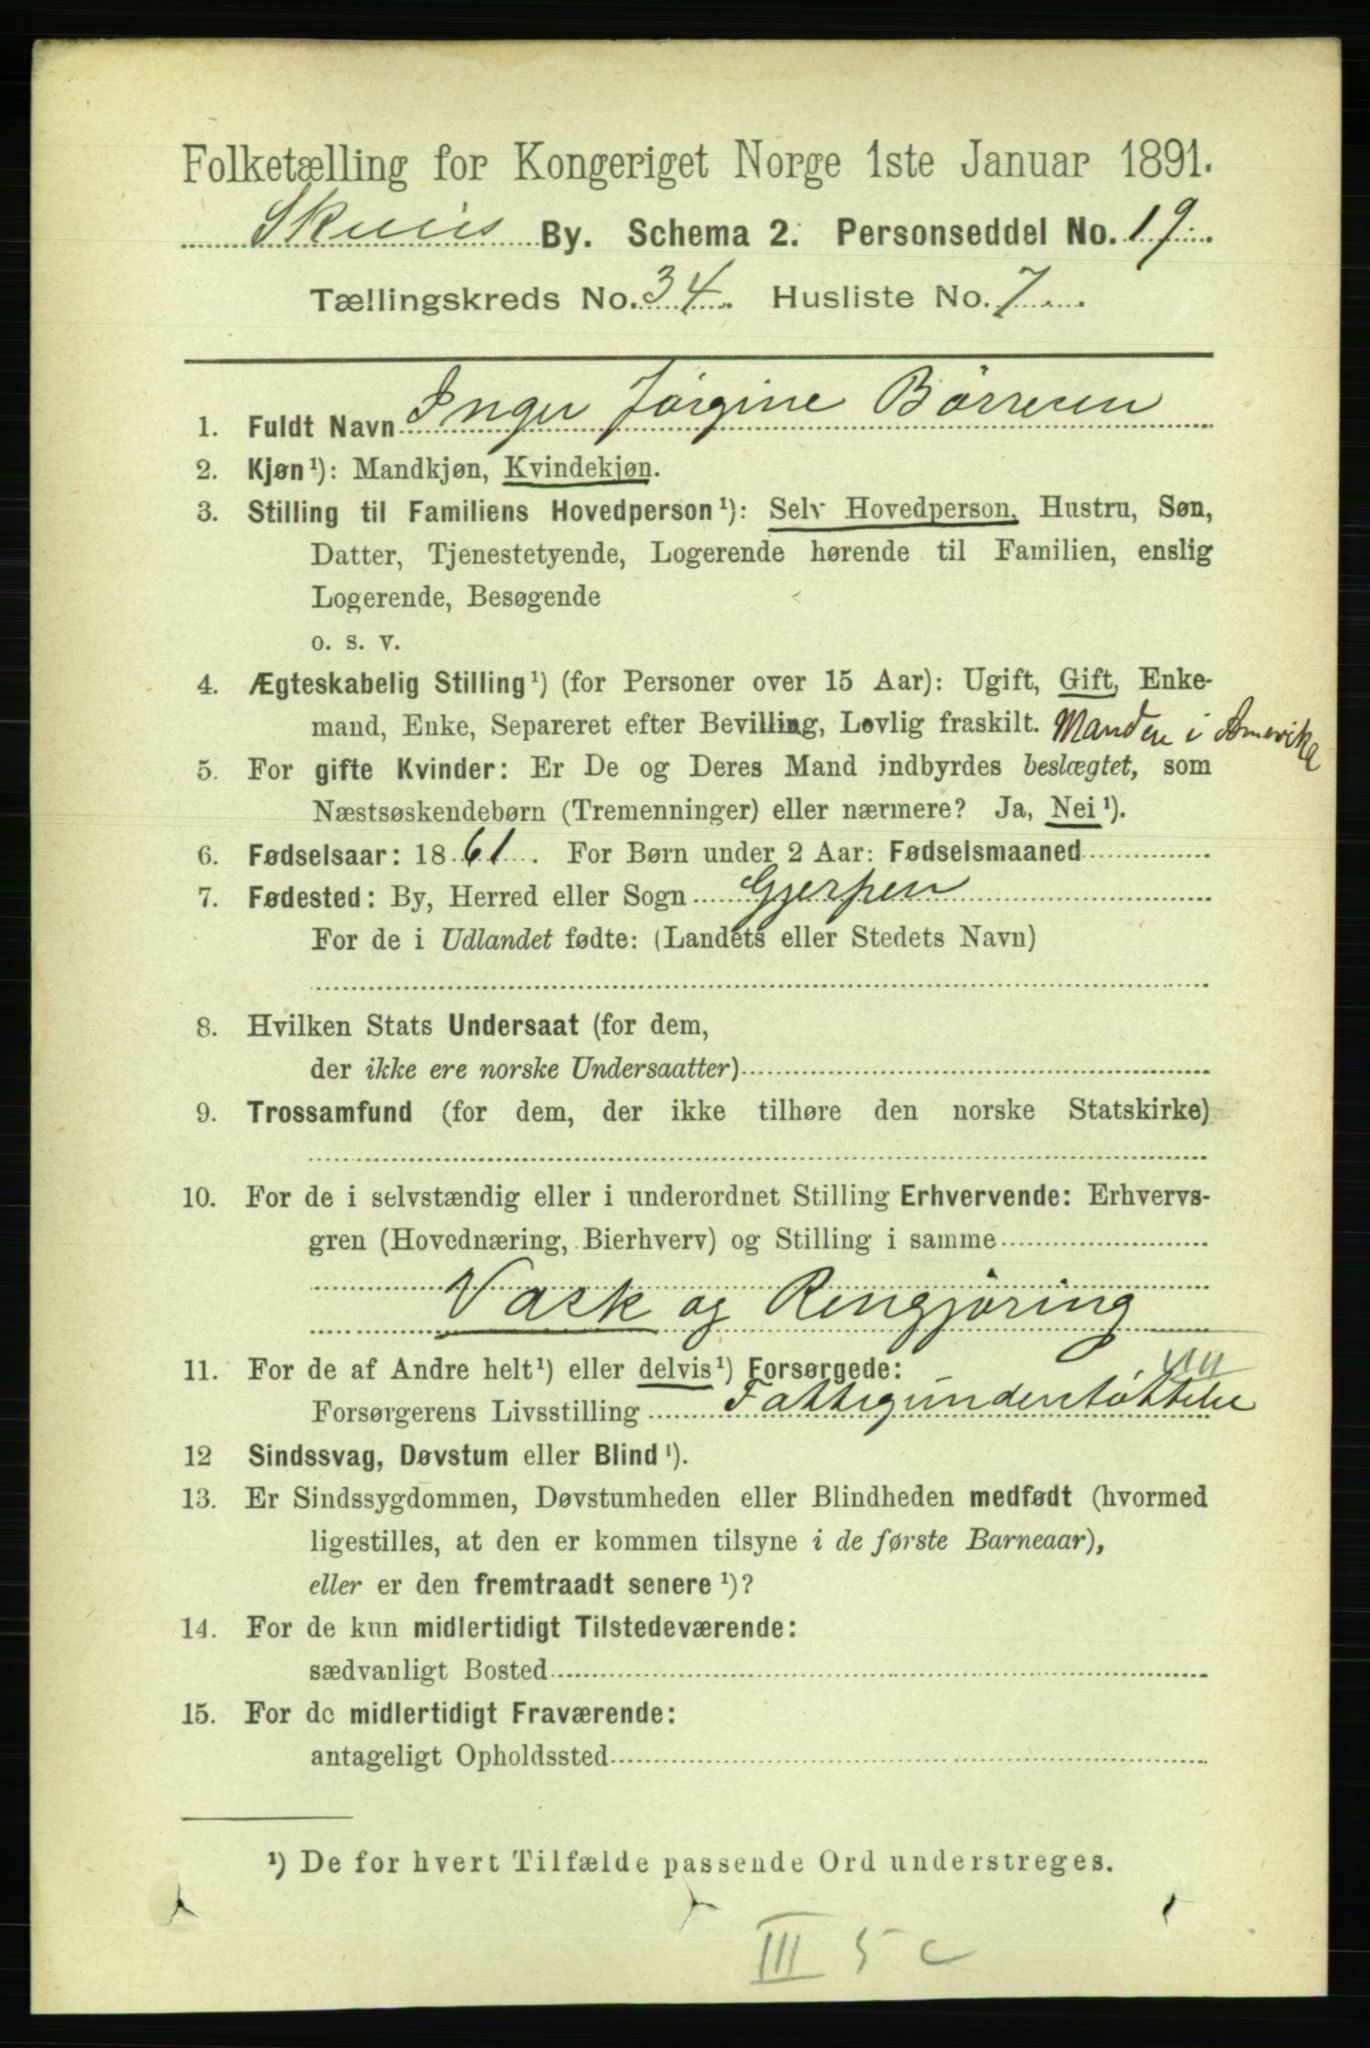 Folketælling for Kongeriget Norge 1ste Januar 1891.
Skiens By. Schema 2. Personseddel No. 19.
Tællingskreds No. 34. Husliste No. 7.
1. Fuldt Navn Inger Jørgine Börresen
2. Kjøn¹): Mandkjøn, Kvindekjøn.
3. Stilling til Familiens Hovedperson¹): Selv Hovedperson, Hustru, Søn,
Datter, Tjenestetyende, Logerende hørende til Familien, enslig
Logerende, Besøgende
o. s. v.
4. Ægteskabelig Stilling¹) (for Personer over 15 Aar): Ugift, Gift, Enke-
mand, Enke, Separeret efter Bevilling, Lovlig fraskilt. Manden i Amerika
5. For gifte Kvinder: Er De og Deres Mand indbyrdes beslægtet, som
Næstsøskendebørn (Tremenninger) eller nærmere? Ja, Nei¹).
6. Fødselsaar: 1861. For Børn under 2 Aar: Fødselsmaaned
7. Fødested: By, Herred eller Sogn Gjerpen
For de i Udlandet fødte: (Landets eller Stedets Navn)
8. Hvilken Stats Undersaat (for dem,
der ikke ere norske Undersaatter)
9. Trossamfund (for dem, der ikke tilhøre den norske Statskirke)
10. For de i selvstændig eller i underordnet Stilling Erhvervende: Erhvervs-
gren (Hovednæring, Bierhverv) og Stilling i samme
Vask og Rengjøring
11. For de af Andre helt¹) eller delvis¹) Forsørgede:
Forsørgerens Livsstilling Fattigunderstøttelse
12 Sindssvag, Døvstum eller Blind¹).
13. Er Sindssygdommen, Døvstumheden eller Blindheden medfødt (hvormed
ligestilles, at den er kommen tilsyne i de første Barneaar),
eller er den fremtraadt senere¹)?
14. For de kun midlertidigt Tilstedeværende:
sædvanligt Bosted
15. For de midlertidigt Fraværende:
antageligt Opholdssted
¹) De for hvert Tilfælde passende Ord understreges.
III 5 c